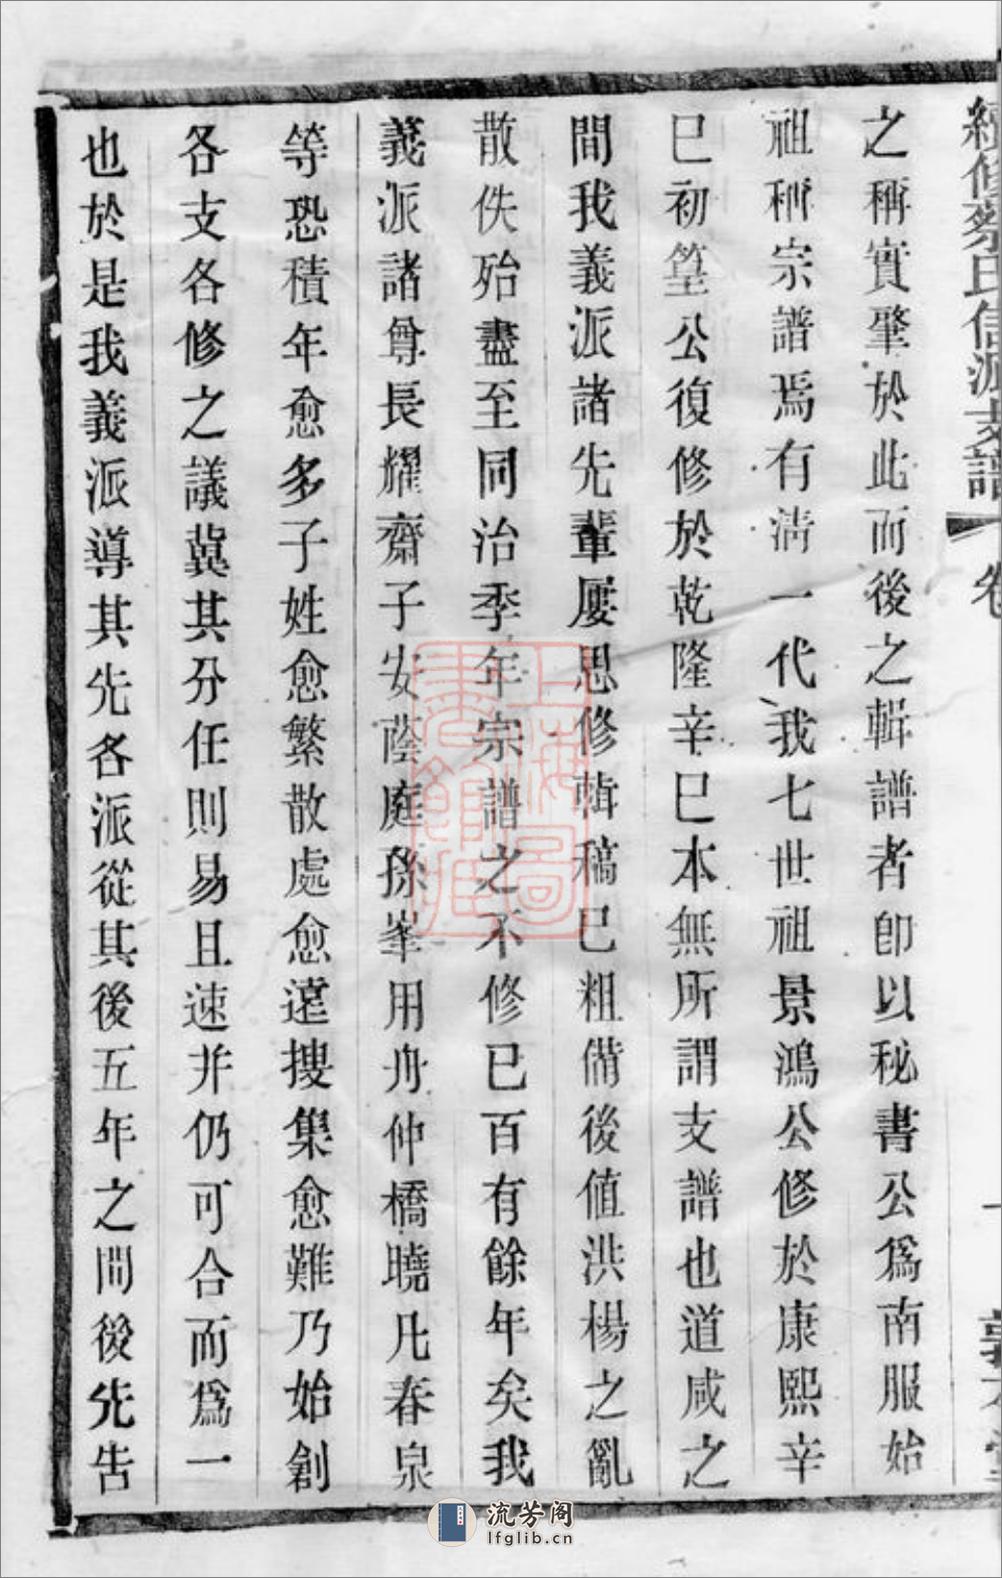 續修蔡氏信派支譜
卷
一
敦本堂
之稱實肇於此而後之輯譜者卽以秘書公爲南服始
祖稱宗譜焉有淸一代我七世祖景鴻公修於康熙辛
巳初篁公復修於乾隆辛巳本無所謂支譜也道咸之
間我義派諸先輩屢思修輯稿已粗備後値洪楊之亂
散佚殆盡至同治季年宗譜之不修已百有餘年矣我
義派諸尊長耀齋子安蔭庭孫峯用舟仲橋曉凡春泉
等恐積年愈多子姓愈繁散處愈遠搜集愈難乃始創
各支各修之議冀其分任則易且速并仍可合而爲一
也於是我義派導其先各派從其後五年之間後先告
上海圖
書館藏
流芳阁
lfglib.cn